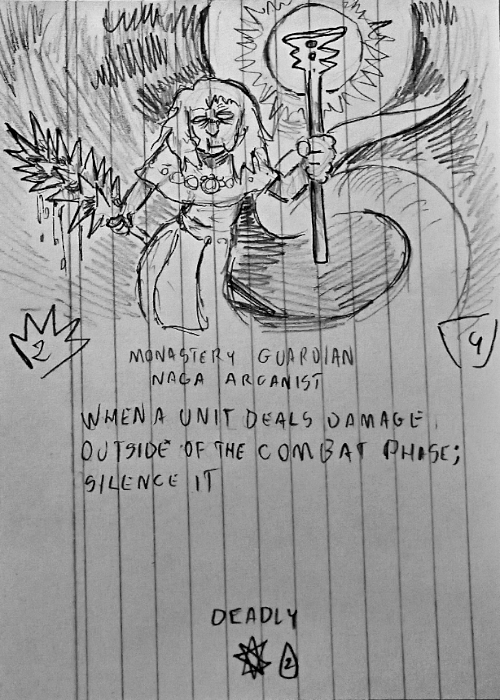 2
4
MONASTERY GUARDIAN
NAGA ARCANIST
WHEN A UNIT DEALS DAMAGE
OUTSIDE OF THE COMBAT PHASE;
SILENCE IT
DEADLY
2